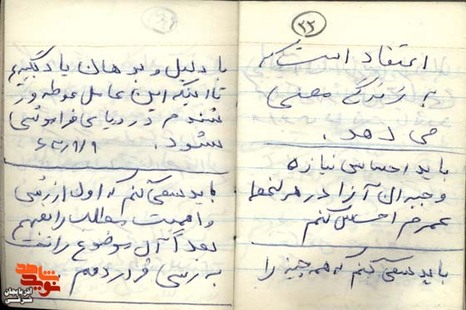 ۲۲
اعتقاد است که
به زندگی معنی
می دهد.
باید احساس نیاز به
و جبران آنرا در هر لحظه
عمرم احساس کنم
باید سعی کنم که همه چیز را
با دلیل و برهان یاد بگیرم
تا اینکه این عامل غوطه ور
شدنم در دریای فراموشی
نشود. ۶۵/۹/۱
باید سعی کنم که اول ارزش
و اهمیت مطالب را بفهمم
بعداً آن موضوع را تحت
بررسی قرار دهم.
نوید شاهد
آذربایجان شرقی